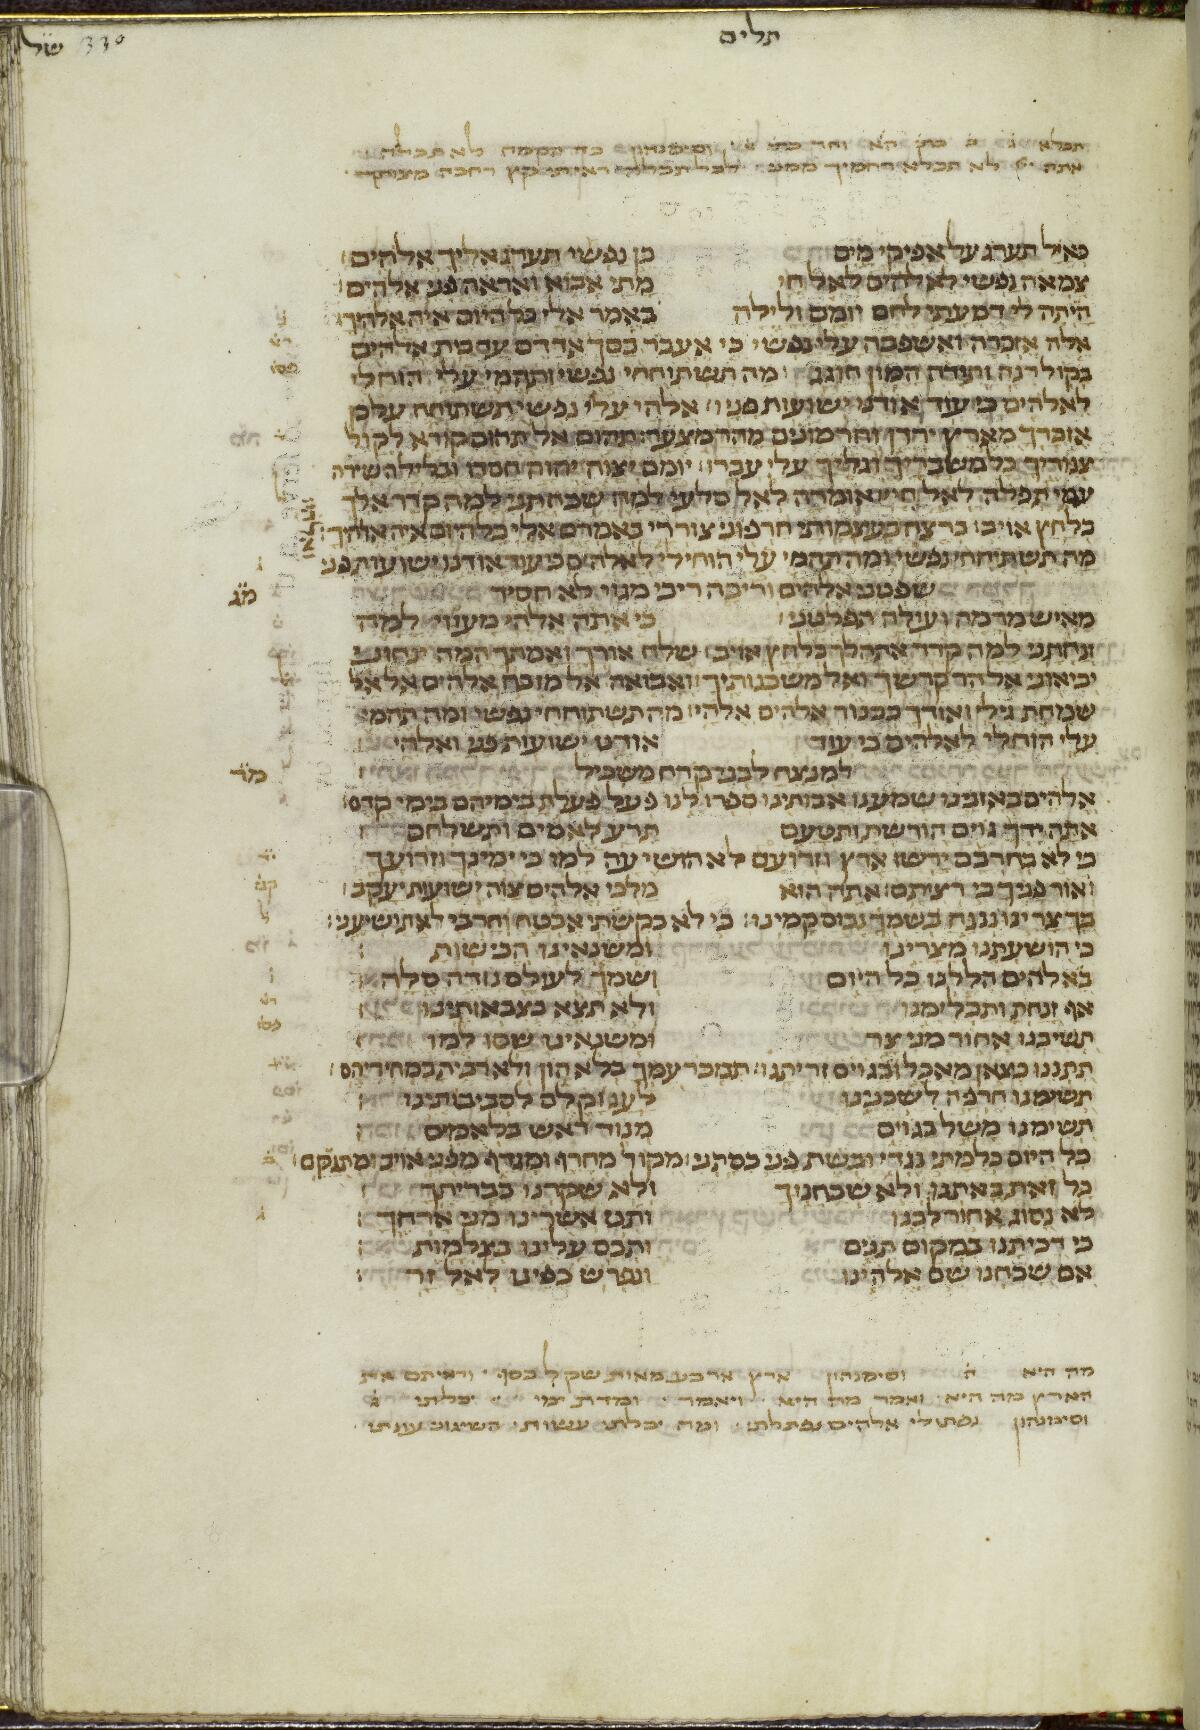 תלים
330 של
תכלא
אתה לא תכלא רחמיך ממני לכל תכלה ראיתי קץ רחבה מצותך
כאיל תערג על אפיקי מים כן נפשי תערג אליך אלהים
צמאה נפשי לאלהים לאל חי מתי אבוא ואראה פני אלהים
היתה לי דמעתי לחם יומם ולילה באמר אלי כל היום איה אלהיך
אלה אזכרה ואשפכה עלי נפשי כי אעבר בסך אדדם עד בית אלהים
בקול רנה ותודה המון חוגג מה תשתוחחי נפשי ותהמי עלי הוחלי
לאלהים כי עוד אודנו ישועות פניו אלהי עלי נפשי תשתוחח על כן
אזכרך מארץ ירדן וחרמונים מהר מצער תהום אל תהום קורא לקול
צנוריך כל משבריך וגליך עלי עברו יומם יצוה יהוה חסדו ובלילה שירה
עמי תפלה לאל חיי אומרה לאל סלעי למה שכחתני למה קדר אלך
בלחץ אויב ברצח בעצמותי חרפוני צוררי באמרם אלי כל היום איה אלהיך
מה תשתוחחי נפשי ומה תהמי עלי הוחילי לאלהים כי עוד אודנו ישועות פני
מג שפטני אלהים וריבה ריבי מגוי לא חסיד
מאיש מרמה ועולה תפלטני כי אתה אלהי מעוזי למה
זנחתני למה קדר אתהלך בלחץ אויב שלח אורך ואמתך המה ינחוני
יביאוני אל הר קדשך ואל משכנותיך ואבואה אל מזבח אלהים אל אל
שמחת גילי ואודך בכנור אלהים אלהי מה תשתוחחי נפשי ומה תהמי
עלי הוחלי לאלהים כי עוד אודנו ישועות פני ואלהי
מד למנצח לבני קרח משכיל
אלהים באזנינו שמענו אבותינו ספרו לנו פעל פעלת בימיהם בימי קדם
אתה ידך גוים הורשת ותטעם תרע לאמים ותשלחם
כי לא בחרבם ירשו ארץ וזרועם לא הושיעה למו כי ימינך וזרועך
ואור פניך כי רציתם אתה הוא מלכי אלהים צוה ישועות יעקב
בך צרינו ננגח בשמך נבוס קמינו כי לא בקשתי אבטח וחרבי לא תושיעני
כי הושעתנו מצרינו ומשנאינו הבישות
באלהים הללנו כל היום ושמך לעולם נודה סלה
אף זנחת ותכלימנו ולא תצא בצבאותינו
תשיבנו אחור מני צר ומשנאינו שסו למו
תתננו כצאן מאכל ובגוים זריתנו תמכר עמך בלא הון ולא רבית במחיריהם
תשימנו חרפה לשכנינו לעג וקלס לסביבותינו
תשימנו משל בגוים מנוד ראש בלאמים
כל היום כלמתי נגדי ובשת פני כסתני מקול מחרף ומגדף מפני אויב ומתנקם
כל זאת באתנו ולא שכחנוך ולא שקרנו בבריתך
לא נסוג אחור לבנו ותט אשרינו מני ארחך
כי דכיתנו במקום תנים ותכס עלינו בצלמות
אם שכחנו שם אלהינו ונפרש כפינו לאל זר
מה היא ה וסימנהון ארץ ארבע מאות שקל כסף וראיתם את
הארץ מה היא ואמר מה היא ויאמר ומדת ימי יכלתי ג
וסימנהון נפתולי אלהים נפתלתי ומה יכלתי עשות השיגוני עונתי